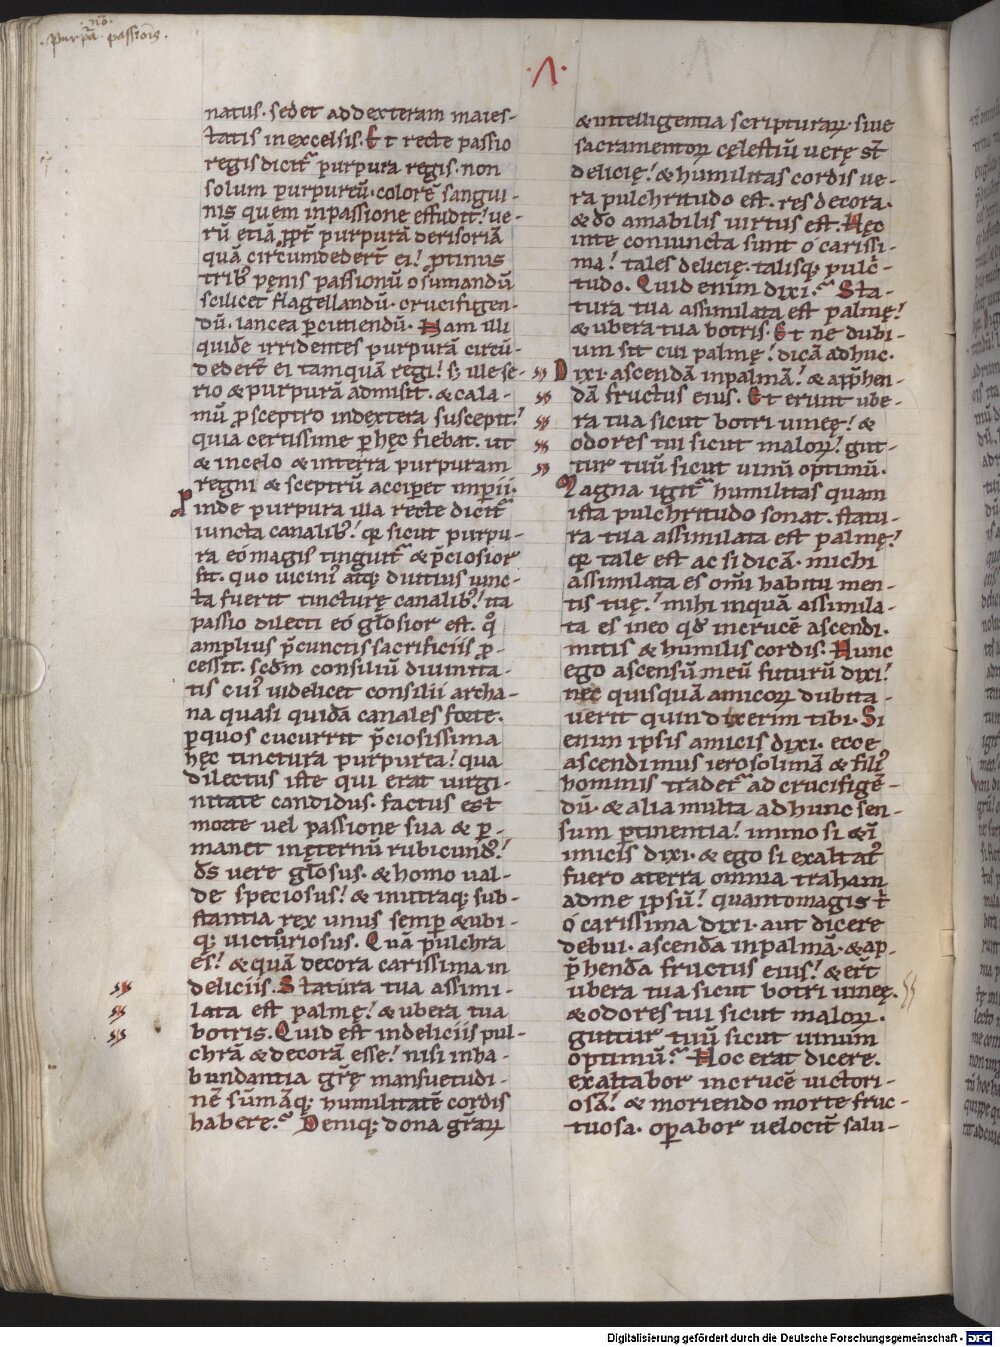 nō.
.purp̄a passiōis.
.Λ.
natus. sedet ad dexteram maies-
tatis in excelsis. Et recte passio
regis dicit᷑ purpura regis. non
solum purpureū. colorē sangui-
nis quem in passione effudit: ue-
rū etiā ꝓpt̄ purpurā derisoriā
quā circumdedert̄ ei: protinus
trib; pęnis passionū osumandū
scilicet flagellandū. crucifigen-
dū. lancea ꝑcutiendū. Nam illi
quidē irridentes purpurā circū-
dedert̄ ei tamquā regi: s; ille se-
rio & purpurā admisit. & cala-
mū ꝓ sceptro in dextera suscepit:
quia certissime ꝑ hęc fiebat. ut
& in celo & in terra purpuram
regni & sceptrū accip̄et imp̄ii.
Pinde purpura illa recte dicit᷑
iuncta canalib;: q̄ sicut purpu-
ra eo magis tinguit᷑ & p̄ciosior
fit. quo uicini᷒ atq; diutius iunc-
ta fuerit tincturę canalib;: ita
passio dilecti eo gl̄osior est. q̊
amplius p̄ cunctis sacrificiis ꝓ-
cessit. scd̄m consiliū diuinita-
tis cui᷒ uidelicet consilii archa-
na quasi quidā canales fuere.
ꝑ quos cucurrit p̄ciosissima
hęc tinctura purpurea: qua
dilectus iste qui erat uirgi-
nitate candidus. factus est
morte uel passione sua & ꝑ-
manet in ęternū rubicund᷒:
d̄s uere gl̄osus. & homo ual-
de speciosus: & in utraq; sub-
stantia rex unus semꝑ & ubi-
q; uictoriosus. Quā pulchra
es: & quā decora carissima in
deliciis. Statura tua assimi-
lata est palmę: & ubera tua
botris. Quid est in deliciis pul-
chrā & decorā esse: nisi in ha-
bundantia gr̄ę mansuetudi-
nē sūmāq; humilitatē cordis
habere? Deniq; dona gr̄aꝝ
& intelligentia scripturaꝝ. siue
sacramentoꝝ cęlestiū uerę st̄
delicię: & humilitas cordis ue-
ra pulchritudo est. res decora.
& d̄o amabilis uirtus est. Hęc
in te coniuncta sunt o carissi-
ma: tales delicię. talisq; pulc̄-
tudo. Quid enim dixi? Sta-
tura tua assimilata est palmę:
& ubera tua botris. Et ne dubi-
um sit cui palmę: dicā adhuc.
Dixi. ascendā in palmā: & app̄hen-
dā fructus eius. Et erunt ube-
ra tua sicut botri uineę: &
odores tui sicut maloꝝ: gut-
tur tuū sicut uinū optimū.
Magna igit᷑ humilitas quam
ista pulchritudo sonat. statu-
ra tua assimilata est palmę:
q̄ tale est ac si dicā. michi
assimilata es om̄i habitu men-
tis tuę: mihi inquā assimila-
ta es in eo qd̄ in crucē ascendi.
mitis & humilis cordis. Nunc
ego ascensū meū futurū dixi:
nec quisquā amicoꝝ dubita-
uerit quin dixerim tibi. Si
enim ipsis amicis dixi. ecce
ascendimus ierosolimā & fili᷒
hominis tradet᷑ ad crucifigē-
dū. & alia multa ad hunc sen-
sum ꝑtinentia: immo si & ī
imicis dixi. & ego si exaltat᷒
fuero a terra omnia traham
ad me ipsū: quanto magis t̄
o carissima dixi. aut dicere
debui. ascendā in palmā. & ap-
p̄hendā fructus eius: & ert̄
ubera tua sicut botri uineę.
& odores tui sicut maloꝝ.
guttur tuū sicut uinum
optimū? Hoc erat dicere.
exaltabor in crucē uictori-
osā: & moriendo morte fruc-
tuosa. oꝑabor uelocit̄ salu-
Digitalisierung gefördert durch die Deutsche Forschungsgemeinschaft - DFG